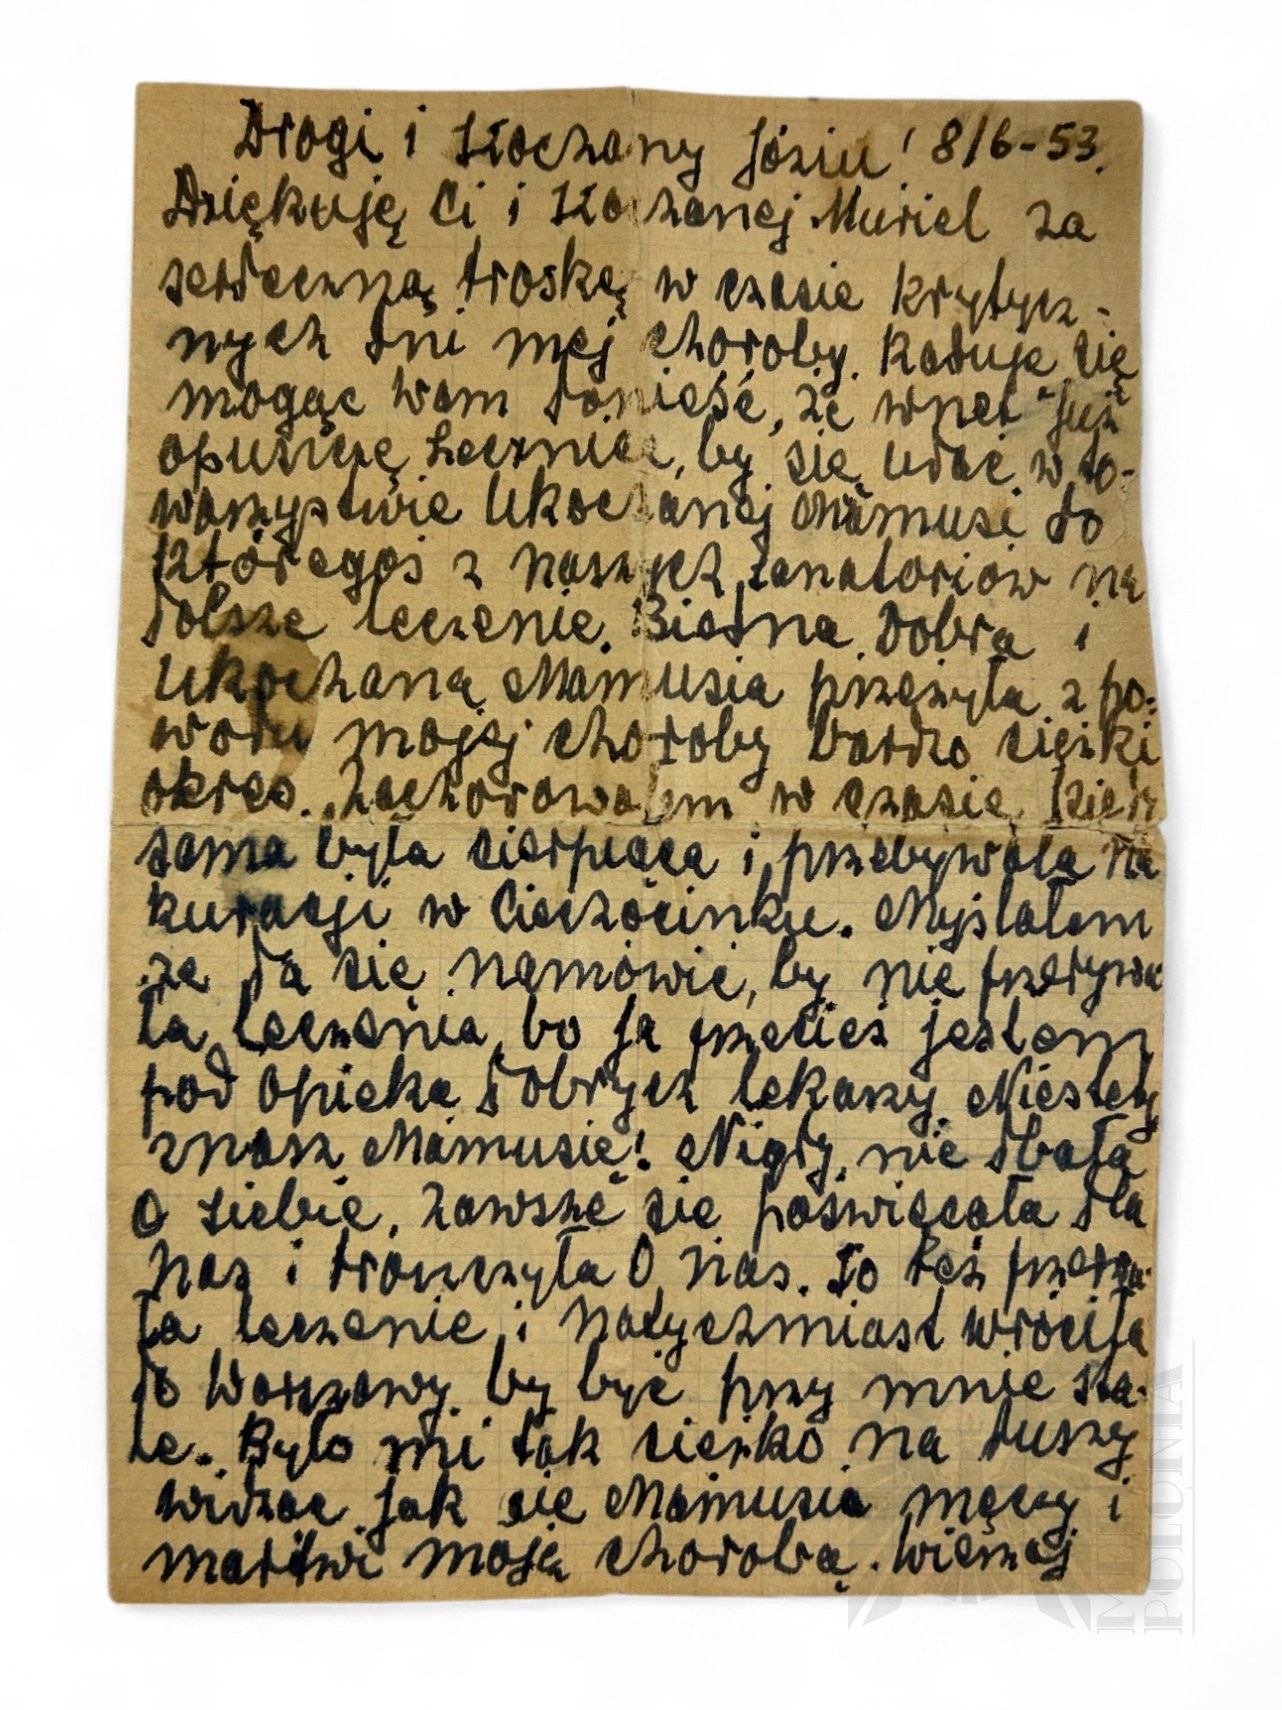 Drogi i Kochany Józiu! 8/6-53.
Dziękuję Ci i Kochanej Muriel za
serdeczną troskę w czasie krytycz-
nych dni mej choroby. Raduję się
mogąc Wam donieść, że wnet już
opuszczę Lecznicę, by się udać w to-
warzystwie Ukochanej Mamusi do
któregoś z naszych sanatoriów na
dalsze leczenie. Biedna Dobra i
Ukochana Mamusia przeżyła z po-
wodu mojej choroby bardzo ciężki
okres. Zachorowałem w czasie, kiedy
sama była cierpiąca i przebywała na
kuracji w Ciechocinku. Myślałem
że da się namówić, by nie przerywa
ła leczenia, bo ja przecież jestem
pod opieką dobrych lekarzy. Niestety
znasz Mamusię! Nigdy nie dbała
o siebie, zawsze się poświęcała dla
nas i troszczyła o nas. To też przerwa-
ła leczenie i natychmiast wróciła
do Warszawy by być przy mnie sta-
le. Było mi tak ciężko na duszy
widząc jak się Mamusia męczy i
martwi moją chorobą. Wierzaj
MEDALE
POLONIA